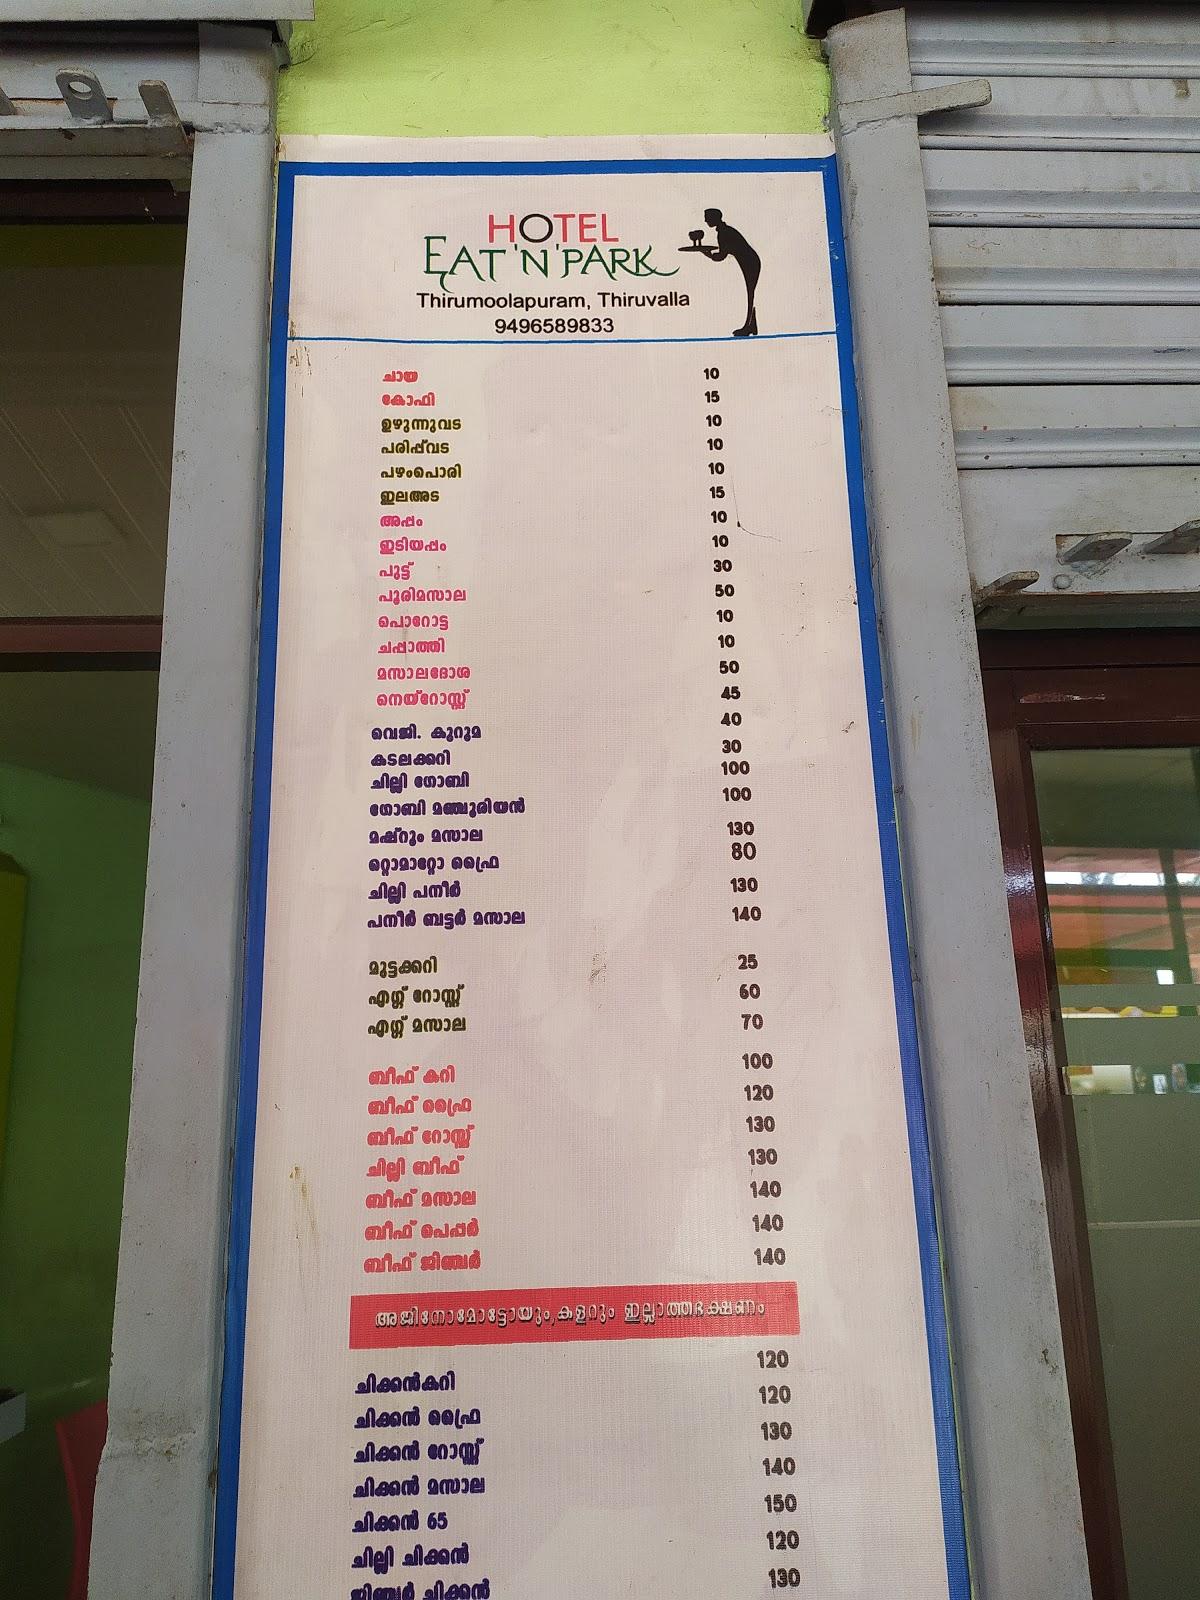 HOTEL
EAT 'N' PARK
Thirumoolapuram, Thiruvalla
9496589833
ചായ 10
കോഫി 15
ഉഴുന്നുവട 10
പരിപ്പ്‌വട 10
പഴംപൊരി 10
ഇലഅട 15
അപ്പം 10
ഇടിയപ്പം 10
പുട്ട് 30
പൂരിമസാല 50
പൊറോട്ട 10
ചപ്പാത്തി 10
മസാലദോശ 50
നെയ്റോസ്റ്റ് 45
വെജി. കുറുമ 40
കടലക്കറി 30
ചില്ലി ഗോബി 100
ഗോബി മഞ്ചൂരിയൻ 100
മഷ്റൂം മസാല 130
റ്റൊമാറ്റോ ഫ്രൈ 80
ചില്ലി പനീർ 130
പനീർ ബട്ടർ മസാല 140
മുട്ടക്കറി 25
എഗ്ഗ് റോസ്റ്റ് 60
എഗ്ഗ് മസാല 70
ബീഫ് കറി 100
ബീഫ് ഫ്രൈ 120
ബീഫ് റോസ്റ്റ് 130
ചില്ലി ബീഫ് 130
ബീഫ് മസാല 140
ബീഫ് പെപ്പർ 140
ബീഫ് ജിഞ്ചർ 140
അജിനോമോട്ടോയും,കളറും ഇല്ലാത്തഭക്ഷണം
ചിക്കൻകറി 120
ചിക്കൻ ഫ്രൈ 120
ചിക്കൻ റോസ്റ്റ് 130
ചിക്കൻ മസാല 140
ചിക്കൻ 65 150
ചില്ലി ചിക്കൻ 120
ജിഞ്ചർ ചിക്കൻ 130